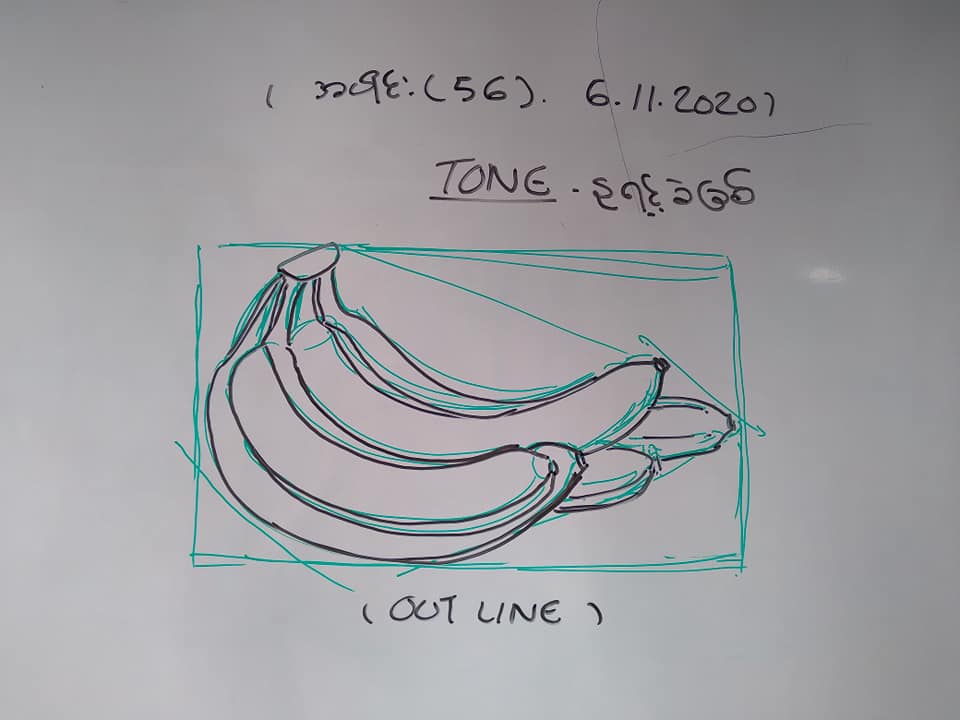 ( အပိုင်း (56). 6.11.2020)
TONE
( OUT LINE )